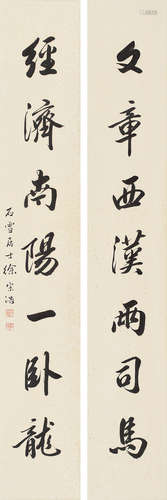 文章西漢兩司馬
經濟南陽一臥龍
石雪居士徐宗浩